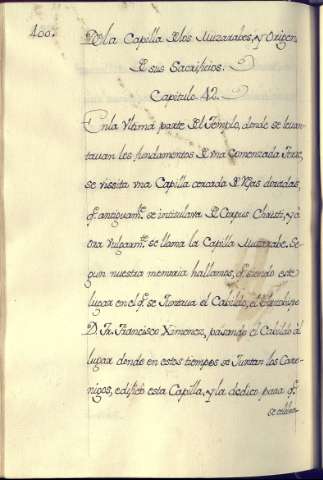 400.
De la Capilla de los Muzarabes, y Origen
de sus Sacrificios.
Capitulo 42.
En la Vltima parte del Templo, donde se levan-
tavan los fundamentos de vna comenzada Torre,
se vissita vna Capilla cercada de Rejas doradas,
q.e antiguam.te se intitulava de Corpus Christi, y á-
ora Vulgarm.te se llama la Capilla Muzarabe. Se-
gun nuestra memoria hallamos, q.e siendo este
lugar en el q.e se Juntava el Cabildo, el
D. Fr. Francisco Ximenez, pasando el Cabildo al
lugar donde en estos tiempos se Juntan los Cano-
nigos, edificó esta Capilla, y la dedico para q.e
se celebra-